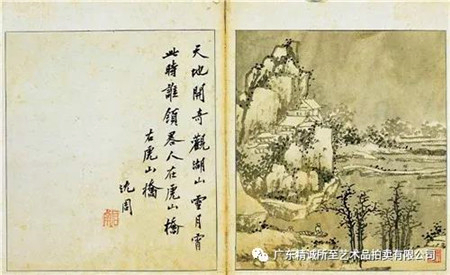 天地開奇觀湖山雪月宵
此時誰領畧人在虎山橋
右虎山橋
沈周
广东精诚所至艺术品拍卖有限公司